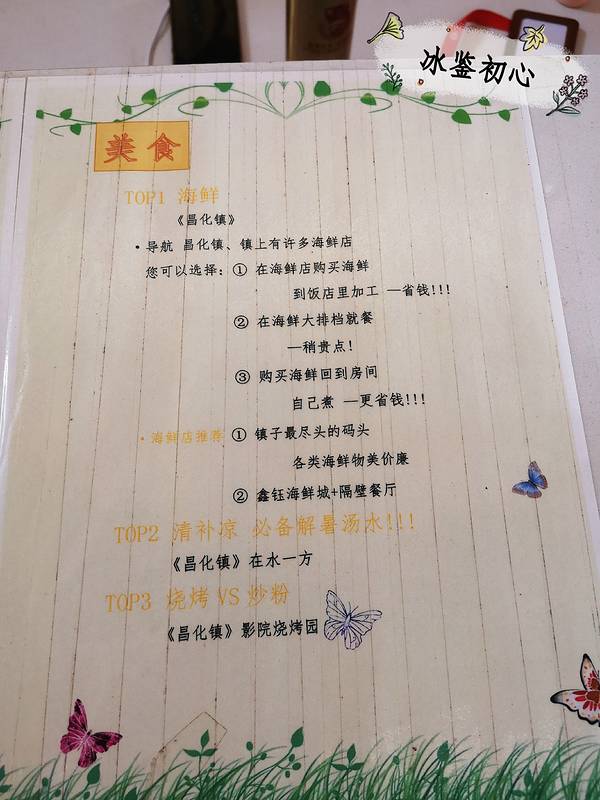 冰鉴初心
美食
TOP1 海鲜
《昌化镇》
•导航 昌化镇、镇上有许多海鲜店
您可以选择：① 在海鲜店购买海鲜
到饭店里加工 —省钱!!!
② 在海鲜大排档就餐
—稍贵点!
③ 购买海鲜回到房间
自己煮 —更省钱!!!
•海鲜店推荐 ① 镇子最尽头的码头
各类海鲜物美价廉
② 鑫钰海鲜城+隔壁餐厅
TOP2 清补凉 必备解暑汤水!!!
《昌化镇》在水一方
TOP3 烧烤 VS 炒粉
《昌化镇》影院烧烤园